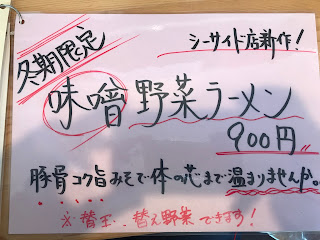 冬期限定
シーサイド店新作!
味噌野菜ラーメン
900円
豚骨コク旨みそで体の芯まで温まりませんか。
※替玉、替え野菜できます!